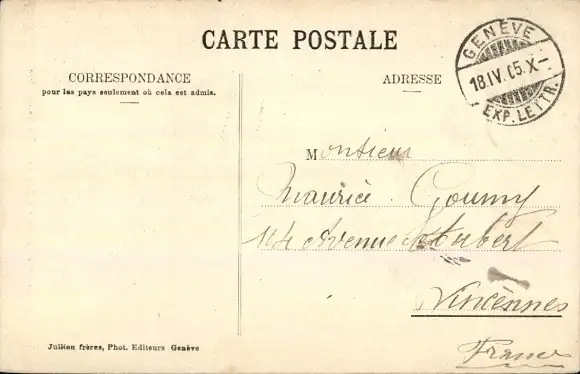 CARTE POSTALE
GENÈVE
18.IV.05.X-
EXP. LETTR.
CORRESPONDANCE
pour les pays seulement où cela est admis.
ADRESSE
Monsieur
Maurice Goumy
104 Avenue Aubert
Vincennes
France
Jullien frères, Phot. Editeurs Genève